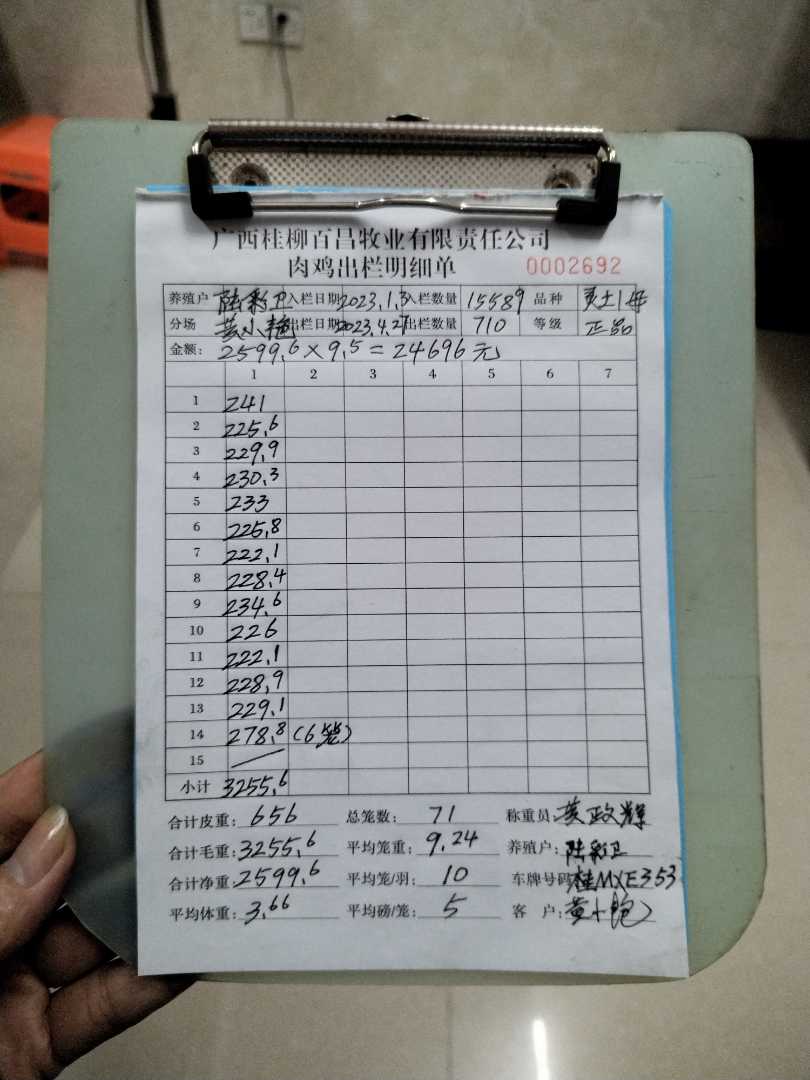 广西桂柳百昌牧业有限责任公司
肉鸡出栏明细单 0002692
养殖户 陆彩卫 入栏日期 2023.1.3 入栏数量 15589 品种 灵土1号
分场 黄小艳 出栏日期 2023.4.27 出栏数量 710 等级 正品
金额: 2599.6×9.5=24696元
1 2 3 4 5 6 7
1 241
2 225.6
3 229.9
4 230.3
5 233
6 225.8
7 222.1
8 228.4
9 234.6
10 226
11 222.1
12 228.9
13 229.1
14 278.8 (6笼)
15
小计 3255.6
合计皮重: 656 总笼数: 71 称重员: 黄政辉
合计毛重: 3255.6 平均笼重: 9.24 养殖户: 陆彩卫
合计净重: 2599.6 平均笼/羽: 10 车牌号码: 桂MXE353
平均体重: 3.66 平均磅/笼: 5 客户: 黄小